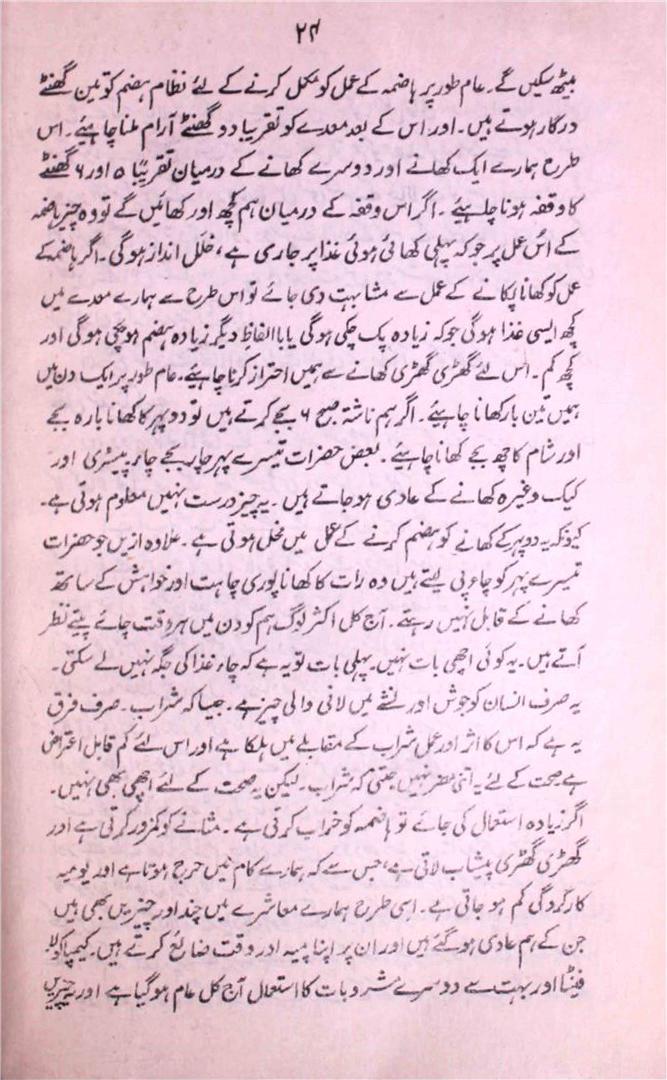 ۲۴
بیٹھ سکیں گے۔ عام طور پر ہاضمہ کے عمل کو مکمل کرنے کے لئے نظام ہضم کو تین گھنٹے
درکار ہوتے ہیں۔ اور اس کے بعد معدے کو تقریباً دو گھنٹے آرام ملنا چاہیئے۔ اس
طرح ہمارے ایک کھانے اور دوسرے کھانے کے درمیان تقریباً ۵ اور ۶ گھنٹے
کا وقفہ ہونا چاہیئے۔ اگر اس وقفہ کے درمیان ہم کچھ اور کھائیں گے تو وہ چیز ہاضمہ
کے اُس عمل پر جو کہ پہلی کھائی ہوئی غذا پر جاری ہے، خلل انداز ہوگی۔ اگر ہاضمہ کے
عمل کو کھانا پکانے کے عمل سے مشابہت دی جائے تو اس طرح سے ہمارے معدے میں
کچھ ایسی غذا ہوگی جو کہ زیادہ پک چکی ہوگی یا با الفاظِ دیگر زیادہ ہضم ہو چکی ہوگی اور
کچھ کم۔ اس لئے گھڑی گھڑی کھانے سے ہمیں احتراز کرنا چاہیئے۔ عام طور پر ایک دن میں
ہمیں تین بار کھانا چاہیئے۔ اگر ہم ناشتہ صبح ۶ بجے کرتے ہیں تو دوپہر کا کھانا بارہ بجے
اور شام کا چھ بجے کھانا چاہیئے۔ بعض حضرات تیسرے پہر چار بجے چائے پیسٹری اور
کیک وغیرہ کھانے کے عادی ہو جاتے ہیں۔ یہ چیز درست نہیں معلوم ہوتی ہے۔
کیونکہ یہ دوپہر کے کھانے کو ہضم کرنے کے عمل میں مخل ہوتی ہے۔ علاوہ ازیں جو حضرات
تیسرے پہر کو چاء پی لیتے ہیں وہ رات کا کھانا پوری چاہت اور خواہش کے ساتھ
کھانے کے قابل نہیں رہتے۔ آج کل اکثر لوگ ہم کو دن میں ہر وقت چائے پیتے نظر
آتے ہیں۔ یہ کوئی اچھی بات نہیں۔ پہلی بات تو یہ ہے کہ چاء غذا کی جگہ نہیں لے سکتی۔
یہ صرف انسان کو جوش اور نشے میں لانی والی چیز ہے۔ جیسا کہ شراب۔ صرف فرق
یہ ہے کہ اس کا اثر اور عمل شراب کے مقابلے میں ہلکا ہے اور اس لئے کم قابل اعتراض
ہے صحت کے لئے یہ اتنی مضر نہیں جتنی کہ شراب۔ لیکن یہ صحت کے لئے اچھی بھی نہیں۔
اگر زیادہ استعمال کی جائے تو ہاضمہ کو خراب کرتی ہے۔ مثانے کو کمزور کرتی ہے اور
گھڑی گھڑی پیشاب لاتی ہے، جس سے کہ ہمارے کام میں حرج ہوتا ہے اور یومیہ
کارکردگی کم ہو جاتی ہے۔ اسی طرح ہمارے معاشرے میں چند اور چیزیں بھی ہیں
جن کے ہم عادی ہو گئے ہیں اور ان پر اپنا پیسہ اور وقت ضائع کرتے ہیں۔ کیمپا کولا
فینٹا اور بہت سے دوسرے مشروبات کا استعمال آج کل عام ہو گیا ہے اور یہ چیزیں